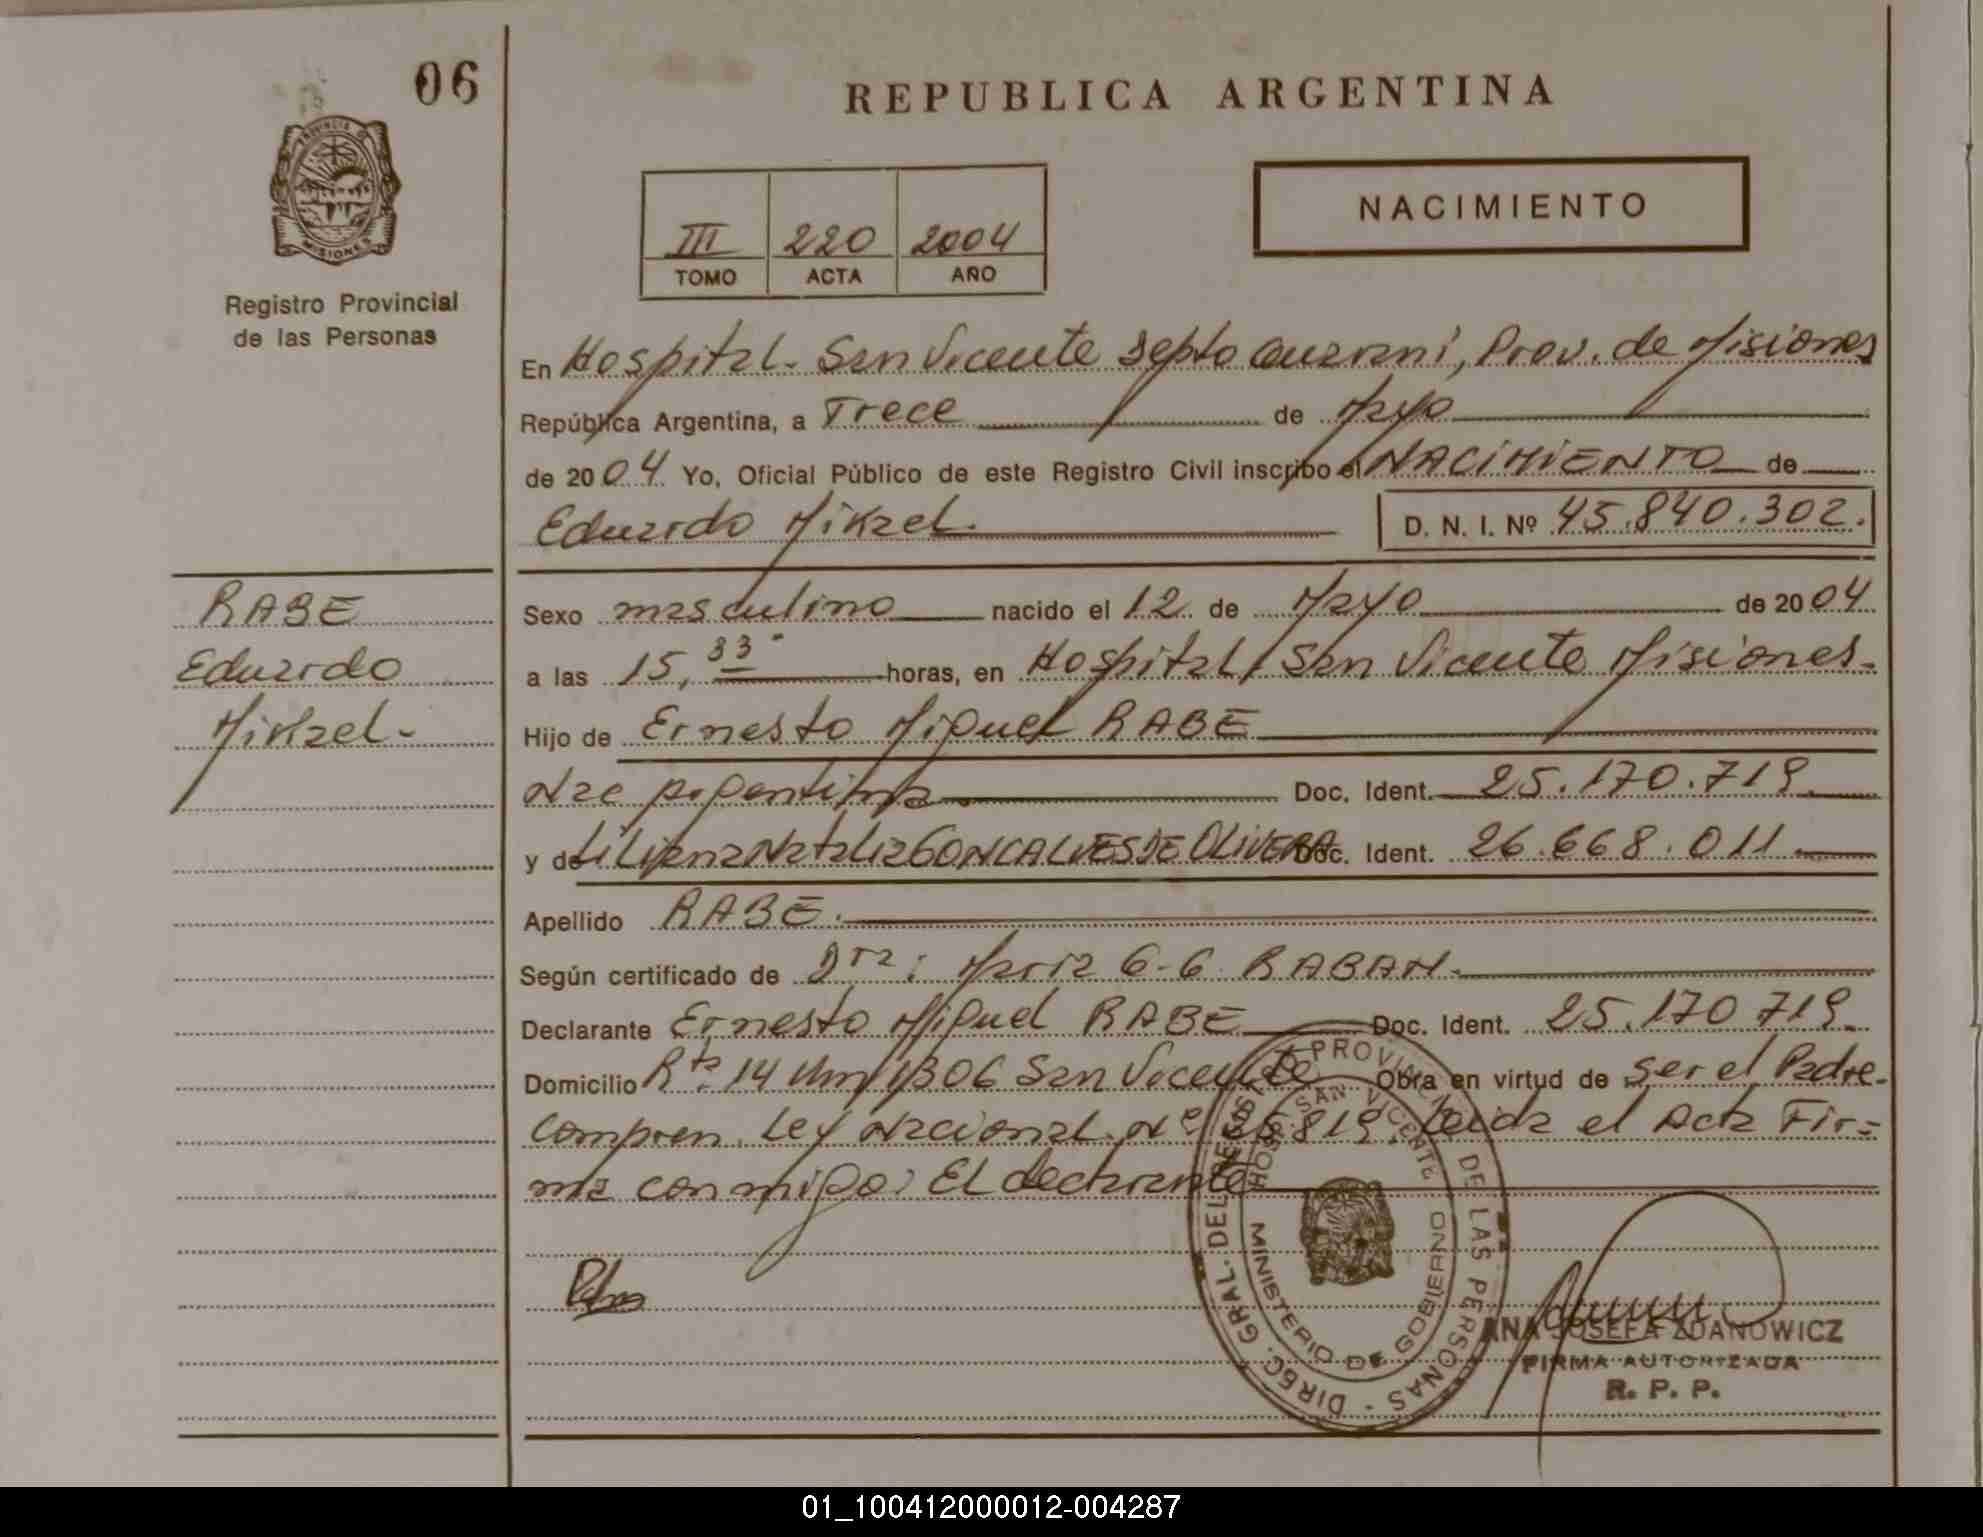 06
REPUBLICA ARGENTINA
PROVINCIA DE
MISIONES
Registro Provincial
de las Personas
NACIMIENTO
III 220 2004
TOMO ACTA AÑO
En Hospital - San Vicente Depto Guaraní, Prov. de Misiones
República Argentina, a Trece de Mayo
de 2004 Yo, Oficial Público de este Registro Civil inscribo el NACIMIENTO de
Eduardo Mikael. D. N. I. Nº 45.840.302.
RABE
Eduardo
Mikael-
Sexo masculino nacido el 12 de Mayo de 2004
a las 15,33 horas, en Hospital, San Vicente Misiones-
Hijo de Ernesto Miguel RABE
Nac Argentina Doc. Ident. 25.170.719
y de Liliana Natalia GONCALVES DE OLIVERA Doc. Ident. 26.668.011
Apellido RABE.
Según certificado de Dra: Maria G. G. RABAN.
Declarante Ernesto Miguel RABE Doc. Ident. 25.170 719.
Domicilio Rta. 14 Km 1306 San Vicente Obra en virtud de ser el Padre.
Compren. Ley Nacional Nº 25819. Leida el Acta Fir=
ma conmigo: El declarante
DIREC. GRAL. DEL REGISTRO PROVINCIAL DE LAS PERSONAS -
HOSP. SAN VICENTE
MINISTERIO DE GOBIERNO
ANA JOSEFA ZDANOWICZ
FIRMA AUTORIZADA
R. P. P.
01_100412000012-004287